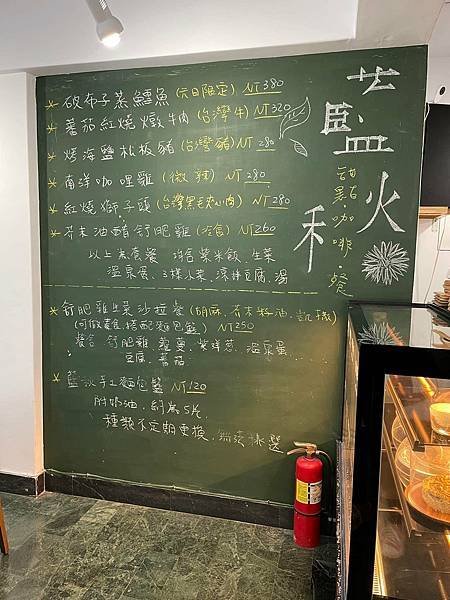 破布子蒸鱈魚 (六日限定) NT380
蕃茄紅燒燉牛肉 (台灣牛) NT320
烤海鹽松板豬 (台灣豬) NT 280
南洋咖哩雞 (微辣) NT280
紅燒獅子頭 (台灣黑毛豬肉) NT280
芥末油醋舒肥雞 (冷食) NT260
以上為套餐 均含 紫米飯、生菜
溫泉蛋、3樣小菜、涼拌豆腐、湯
舒肥雞生菜沙拉餐 (胡麻.芥末籽油.凱撒)
(可做素食 搭配麵包籃) NT250
套餐含 舒肥雞 紫洋蔥、溫泉蛋
豆腐、蕃茄
藍秋手工麵包籃 NT120
附奶油.約為5片
種類不定期更換.無法挑選
藍
秋
甜點.咖啡.餐